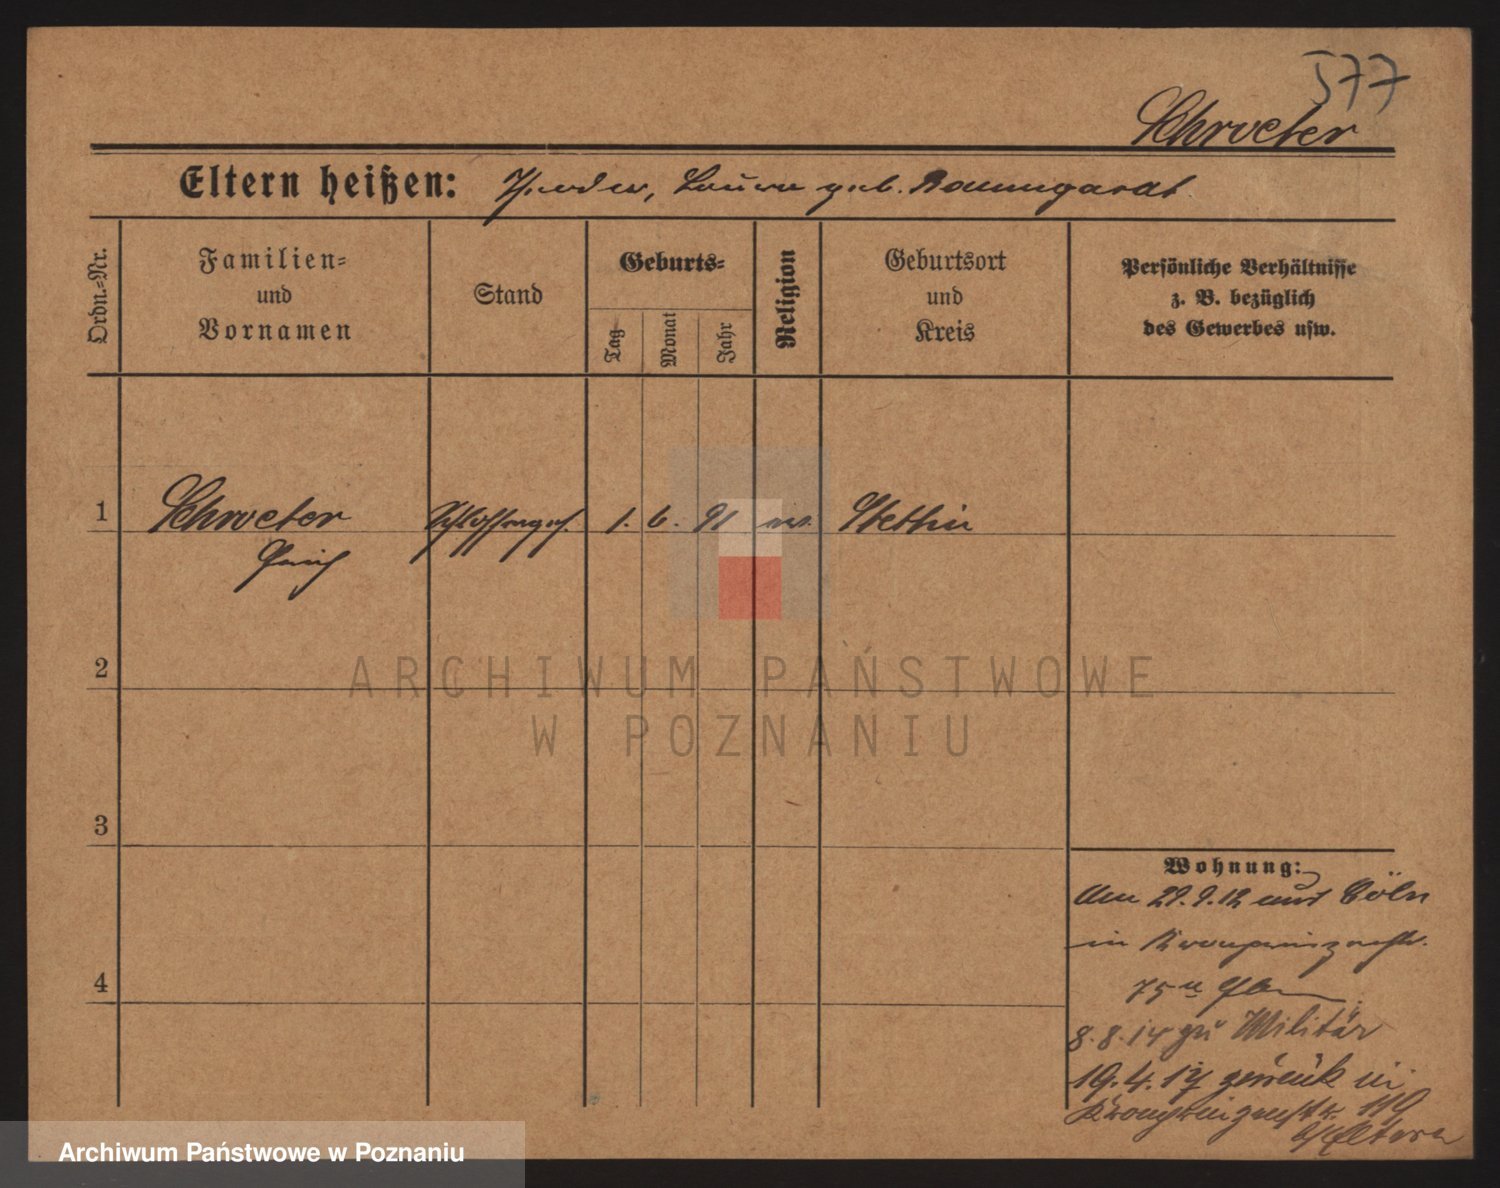 577
Schroeter
Eltern heißen: Theodor, Laura geb. Baumgardt
Ordn.-Nr.
Familien-
und
Vornamen
Stand
Geburts-
Tag
Monat
Jahr
Religion
Geburtsort
und
Kreis
Persönliche Verhältnisse
z. B. bezüglich
des Gewerbes usw.
1
Schroeter
Schlosserges.
1. 6. 91
ev.
Stettin
2
ARCHIWUM PAŃSTWOWE
W POZNANIU
3
4
Wohnung:
Am 29.9.12 aus Cöln
in Kronprinzenstr.
75
8.8.14 zu Militär
19.4.17 zurück in
Kronprinzenstr. 119
b/Eltern
Archiwum Państwowe w Poznaniu